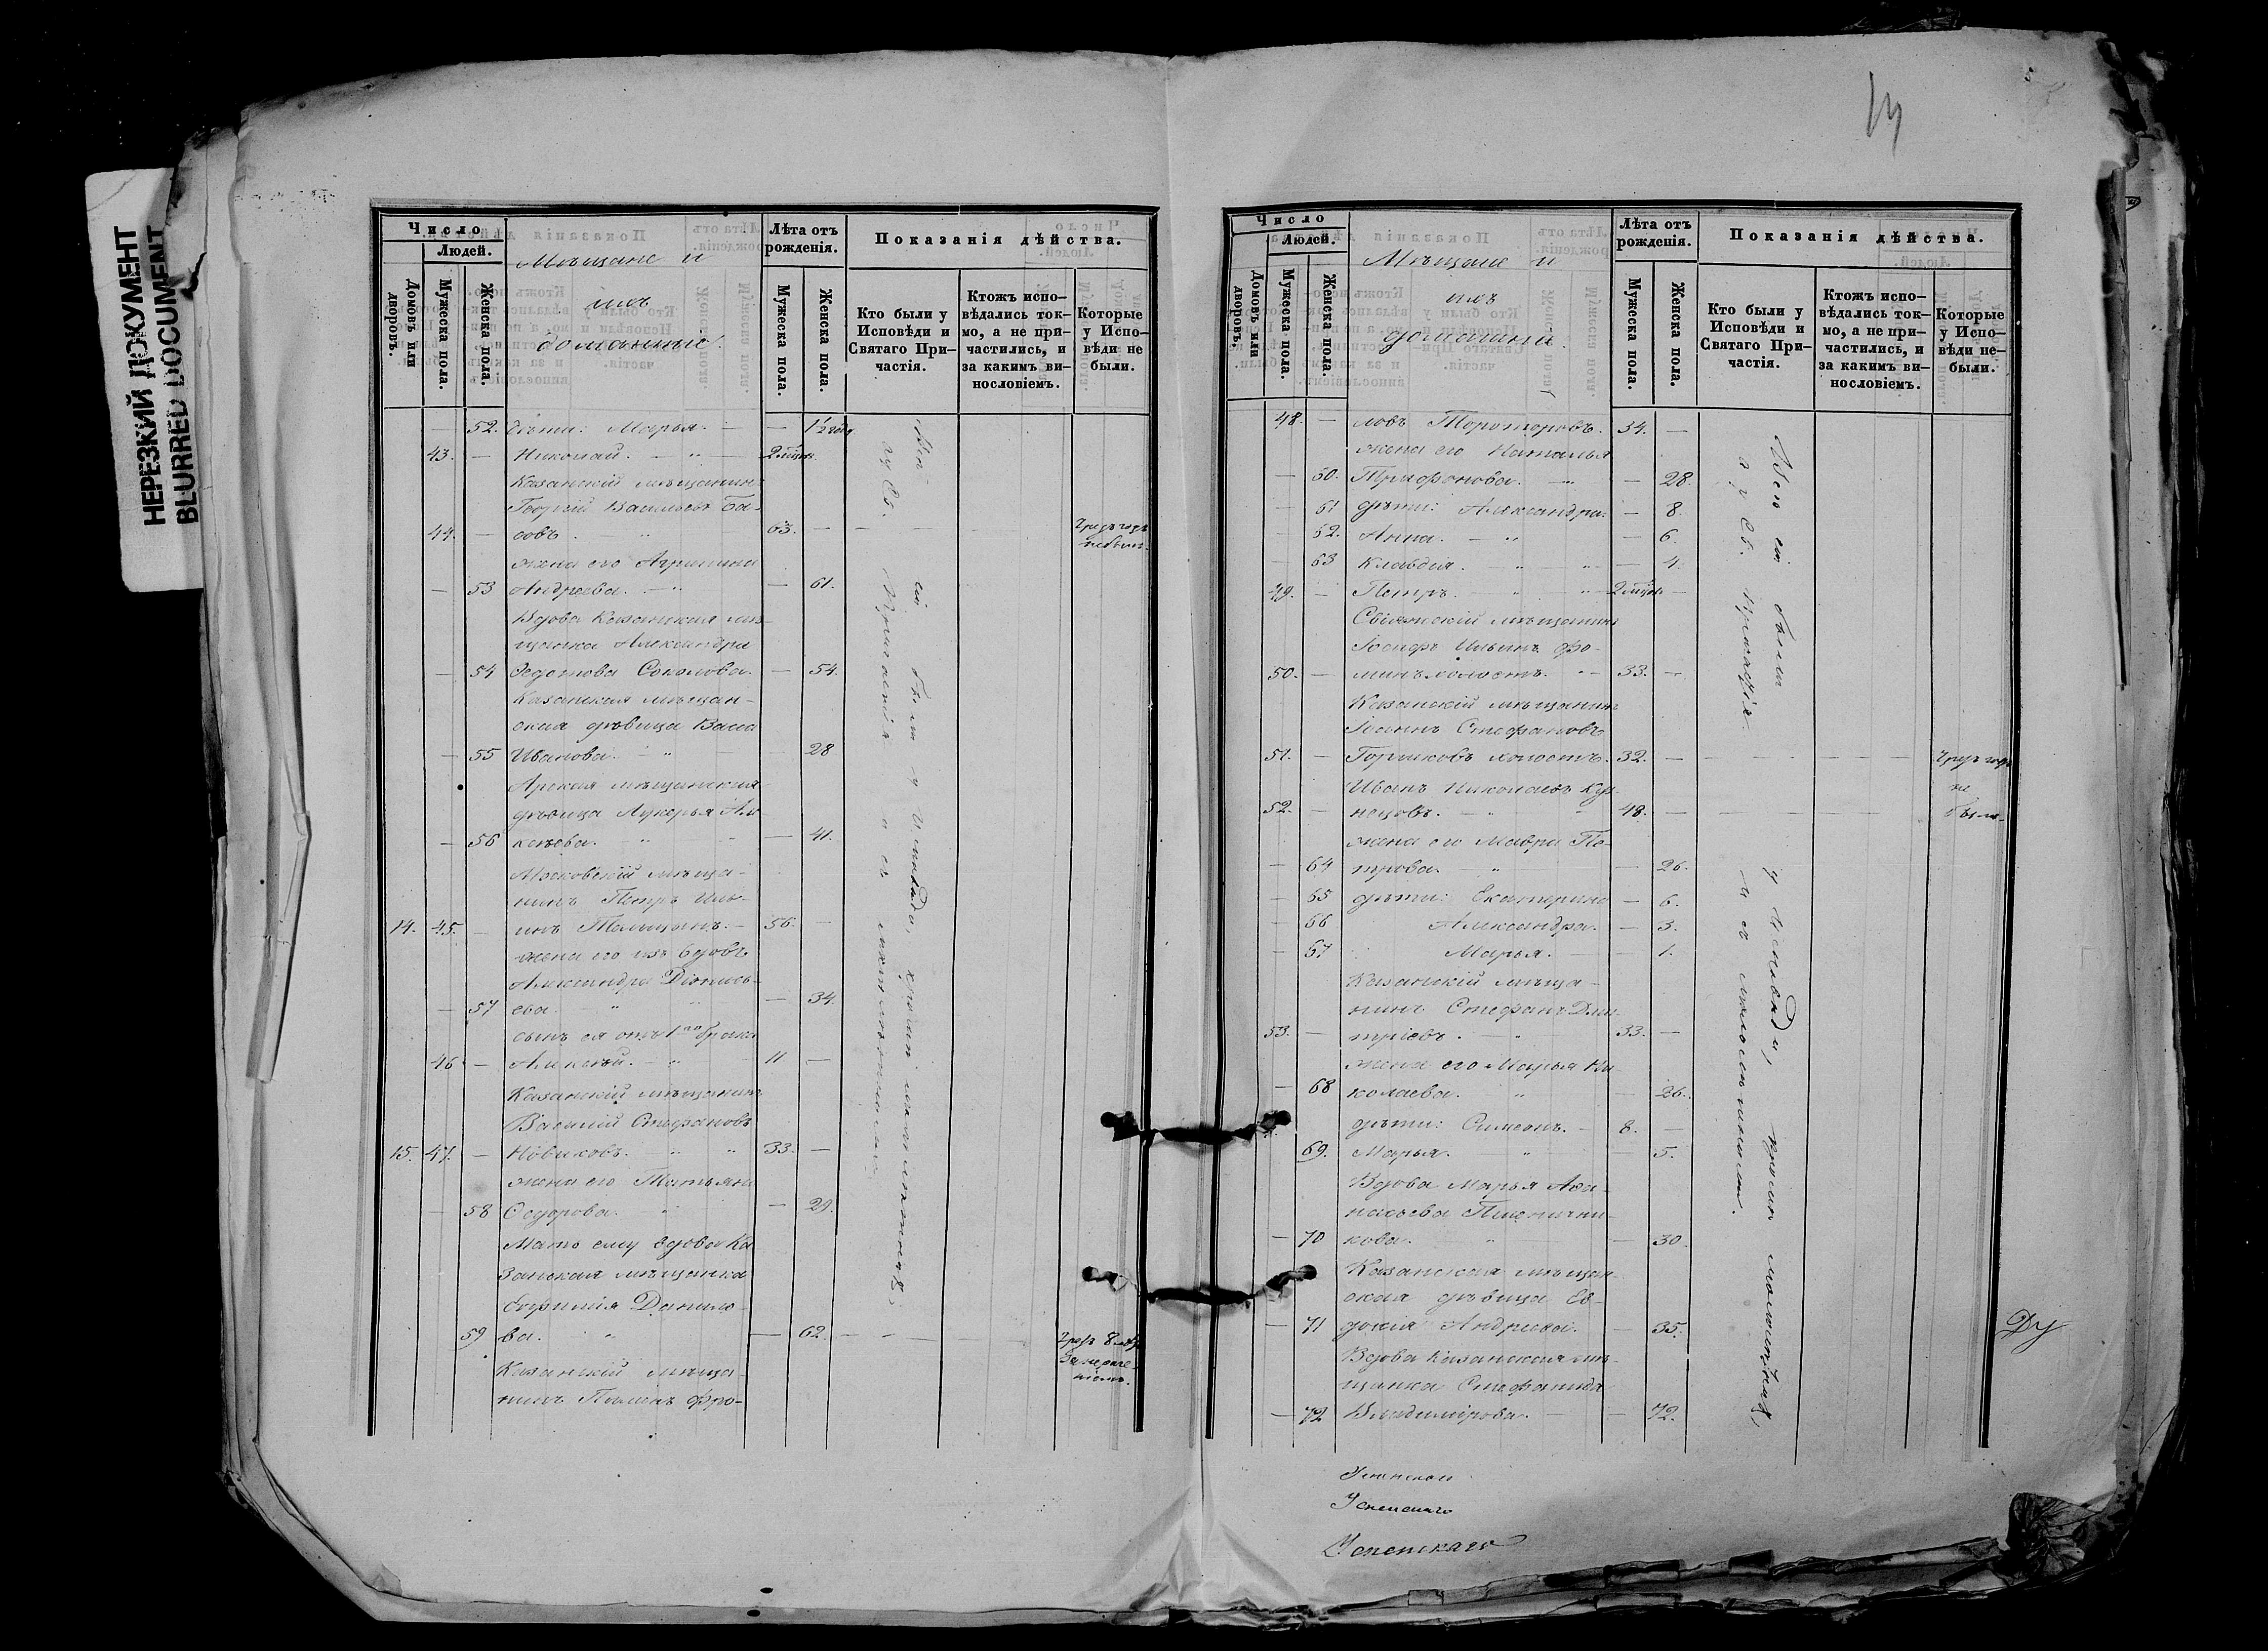 НЕРЕЗКИЙ ДОКУМЕНТ
BLURRED DOCUMENT
Число
Людей.
Домовъ или дворовъ.
Мужеска пола.
Женска пола.
Мѣщане и
ихъ
домашніе.
Лѣта отъ рожденія.
Мужеска пола.
Женска пола.
Показанія дѣйства.
Кто были у Исповѣди и Святаго При-
частія.
Ктожъ испо-
вѣдались ток-
мо, а не при-
частились, и
за какимъ ви-
нословіемъ.
Которые
у Испо-
вѣди не
были.
— 52. дѣти: Марья. — — 1½ года
43. — Николай. — " — 2 мѣсяц.
Казанскій мѣщанинъ
Георгій Васильевъ Ба-
44. — совъ. — " — 63. — —
жена его Агрипина
— 53 Андреева. — " — 61.
Вдова Казанская мѣ-
щанка Александра
— 54 Федотова Соколова. — 54.
Казанская мѣщан-
ская дѣвица Васса
— 55 Иванова. — " — 28
Арская мѣщанская
дѣвица Лукерья Але
— 56 ксѣева. — " — 41.
Московскій мѣща-
нинъ Петръ Иль-
14. 45. — инъ — 56. —
жена его изъ вдовъ
Александра Діонись-
— 57 ева. " — 34.
сынъ ея отъ 1го брака
46. — Алексѣй. — " — 11 —
Казанскій мѣщанинъ
Василій Стефановъ
15. 47. — Новиковъ. — " " 33. —
жена его Татьяна
— 58 Федорова. — " — 29.
Мать ему вдова Ка
занская мѣщанка
Евфимія Данило-
59 ва. " — 62. — —
Чрезъ 8 лѣтъ
Казанскій мѣща-
нинъ Пименъ Фро-
Всѣ сіи были у исповѣди,
и у Св. Причастія
Число
Людей.
Домовъ или дворовъ.
Мужеска пола.
Женска пола.
Мѣщане и
ихъ
домашніи.
Лѣта отъ рожденія.
Мужеска пола.
Женска пола.
Показанія дѣйства.
Кто были у Исповѣди и Святаго При-
частія.
Ктожъ испо-
вѣдались ток-
мо, а не при-
частились, и
за какимъ ви-
нословіемъ.
Которые
у Испо-
вѣди не-
были.
48. — ловъ Тороторовъ. 34. —
жена его Наталья
— 60. Трифонова. — " — 28.
— 61 дѣти: Александра. — 8.
— 62. Анна. — " — 6.
— 63 Клавдія. — " — 4.
49. — Петръ. — " — 2 мѣсяц. —
Свіяжскій мѣщанинъ
Іосифъ Ильинъ Фо-
50. — минъ холостъ. — 33. —
Казанскій мѣщанинъ
Іоаннъ Стефановъ
51. — Горшковъ холостъ. 32. — — —
Чрезъ годъ
не
были.
Иванъ Николаевъ Куз-
52. — нецовъ. — 48. — — —
жена его Мавра Пе-
— 64 трова. — " — 26.
— 65 дѣти: Екатерина — 6.
— 66 Александра. — 3.
— 67 Марья. — — 1.
Казанскій мѣща-
нинъ Стефанъ Дми-
53. — тріевъ. — " 33. —
жена его Марья Ни
— 68 колаева. " — 26.
дѣти: Симеонъ. — 8. —
69. Марья. " — 5.
Вдова Марья Афа-
насьева Пшенични-
— 70 кова. " — 30.
Казанская мѣщан-
ская дѣвица Ев-
— 71 докія Андреева. — 35.
Вдова Казанская мѣ-
щанка Стефанида
— 72 Владимірова. — — 72.
Всѣ сіи были у исповѣди, кромѣ
и у Св. Причастія
Успенскаго
Успенскаго